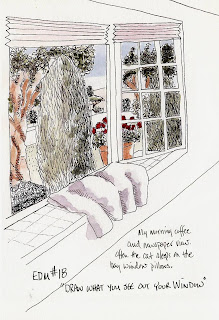 My morning coffee
and newspaper view.
Often the cat sleeps on the
bay window pillows.
EDM #18
"DRAW WHAT YOU SEE OUT YOUR WINDOW"